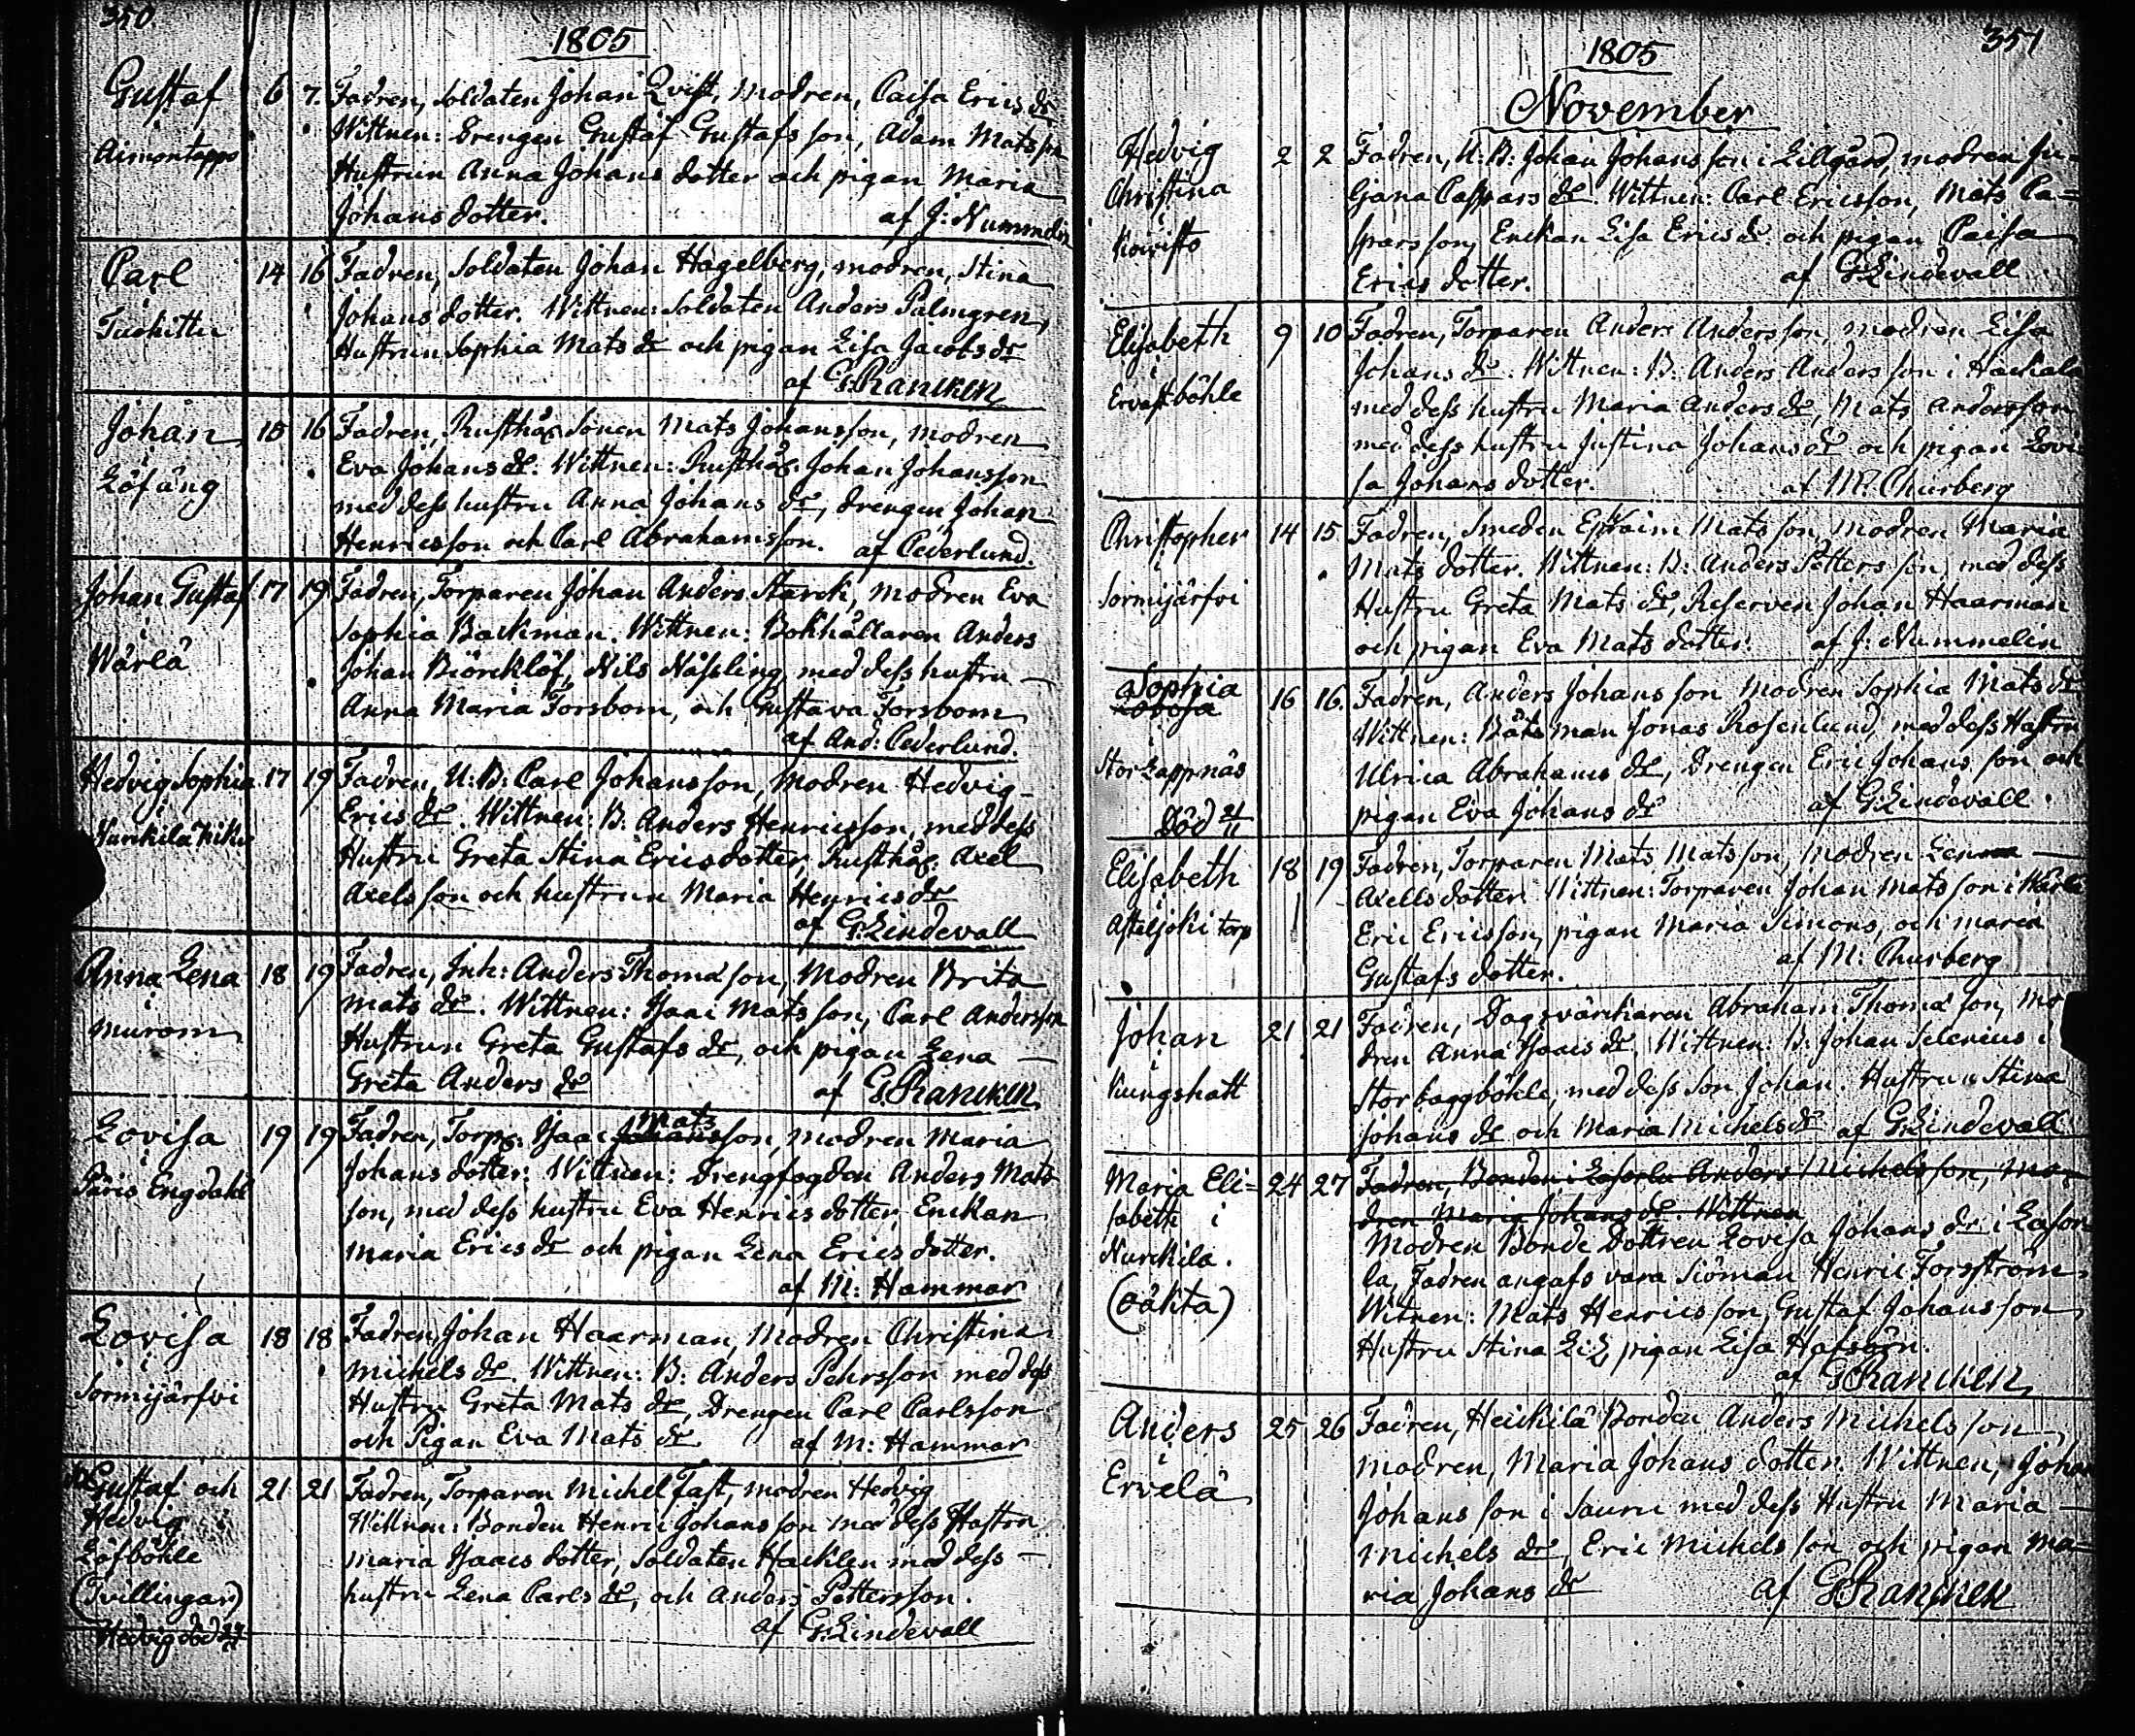 350.
1805
Gustaf 6 7. Fadren, Soldaten Johan Qvist, Modren, Caisa Erics dr
i Wittnen: Drengen Gustaf Gustafs son, Adam Mats son
Aimontappo Hustrun Anna Johans dotter och pigan Maria
Johans dotter. af J: Nummelin
Carl 14 16 Fadren, Soldaten Johan Hagelberg, modren, Stina
i Johans dotter. Wittnen: Soldaten Anders Palmgren,
Tuokittu Hustrun Sophia Mats dr och pigan Lisa Jacobs dr
af G: Rancken
Johan 15 16 Fadren, Rusthåls Sonen Mats Johansson, modren
i Eva Johans dr. Wittnen: Rusthål. Johan Johansson
Löfång med dess hustru Anna Johans dr, drengen Johan
Henricsson och Carl Abrahamsson. af Cederlund.
Johan Gustaf 17 19 Fadren, Torparen Johan Anders Starck, Modren Eva
i Sophia Backman. Wittnen: Bokhållaren Anders
Wärlä Johan Biörcklöf, Nils Nässling med dess hustru
Anna Maria Forsbom, och Gustava Forsbom
af And: Cederlund.
Hedvig Sophia 17 19 Fadren, U: B: Carl Johansson, Modren Hedvig
i Erics dr. Wittnen: B: Anders Henricsson, med dess
Nurckila Hustru Greta Stina Ericsdotter, Rusthål. Axel
Axels son och hustrun Maria Henrics dr
af G: Lindevall
Anna Lena 18 19 Fadren, Inh: Anders Thomas son, Modren Brita
i Mats dr. Wittnen: Isaac Mats son, Carl Andersson
Murom Hustrun Greta Gustafs dr, och pigan Lena
Greta Anders dr af G: Rancken
Lovisa 19 19 Fadren, Torp: Isaac Johans Mats son, modren Maria
i Johans dotter: Wittnen: Drengfogden Anders Mats
Päris Engdahl son, med dess hustru Eva Henrics dotter, Enkan
Maria Erics dr och pigan Lena Erics dotter.
af M: Hammar
Lovisa 18 18 Fadren, Johan Haarman, Modren Christina
i Michels dr. Wittnen: B: Anders Pehrsson med dess
Sormijärfvi Hustru Greta Mats dr, Drengen Carl Carlsson
och Pigan Eva Mats dr af M: Hammar
Gustaf och 21 21 Fadren, Torparen Michel Fast, modren Hedvig
Hedvig i Wittnen: Bonden Henric Johans son med dess Hustru
Löfböhle Maria Isaacs dotter, Soldaten Hacklin med dess
(Tvillingar) hustru Lena Carls dr, och Anders Pettersson.
Hedvig död af G: Lindevall
351
1805
November
Hedvig 2 2 Fadren, U: B: Johan Johans son i Lillgård, modren Ju=
Christina liana Caspars dr. Wittnen: Carl Ericsson, Mats Ca=
i spars son, Enckan Lisa Erics dr och pigan Caisa
Koivisto Erics dotter. af G: Lindevall
Elisabeth 9 10 Fadren, Torparen Anders Andersson, modren Lisa
i Johans dr. Wittnen: B: Anders Anders son i Hackala
Ervastböhle med dess hustru Maria Anders dr, Mats Andersson
med dess hustru Justina Johans dr och pigan Lovi
sa Johans dotter. af M: Churberg
Christopher 14 15 Fadren, Smeden Ephraim Mats son, modren Maria
i Mats dotter. Wittnen: B: Anders Petters son, med dess
Sormijärfvi Hustru Greta Mats dr, Reserven Johan Haarman
och pigan Eva Mats dotter. af J: Nummelin
Sophia 16 16. Fadren, Anders Johans son Modren Sophia Mats dr
Lovisa Wittnen: Båtsman Jonas Rosenlund, med dess Hustru
i Ulrica Abrahams dr, Drengen Eric Johans son och
Storkappnäs pigan Eva Johans dr af G: Lindevall.
Död 21/11
Elisabeth 18 19 Fadren, Torparen Mats Matsson, Modren Lena
i Axells dotter. Wittnen: Torparen Johan Mats son i Wärlä
Asteljoki torp Eric Ericsson, pigan Maria Simons, och Maria
Gustafs dotter. af M: Churberg
Johan 21 21 Fadren, Dagsvärckaren Abraham Thomas son, Mo
i dren Anna Isaacs dr. Wittnen: B: Johan Selenius i
Kungshatt Storbaggböhle, med dess Son Johan. Hustrun Stina
Johans dr och Maria Michels dr af G: Lindevall
Maria Eli= 24 27 Fadren, Bonden i Anders Michelsson, Mo=
sabeth i dren Maria Johans dr. Wittnen
Nurckila. Modren Bonde Dottren Lovisa Johans dr i Eason
(oäkta) la, Fadren angafs vara Siöman Henric Forsström,
Witnen: Mats Henrics son, Gustaf Johans son
Hustru Stina Liz, pigan Lisa Hafsörn.
af G: Rancken
Anders 25 26 Fadren, Heickilä Bonden Anders Michels son
i modren, Maria Johans dotter. Wittnen, Johan
Ervelä Johans son i Sauru med dess Hustru Maria
Michels dr, Eric Michels son och pigan Ma=
ria Johans dr af G: Rancken